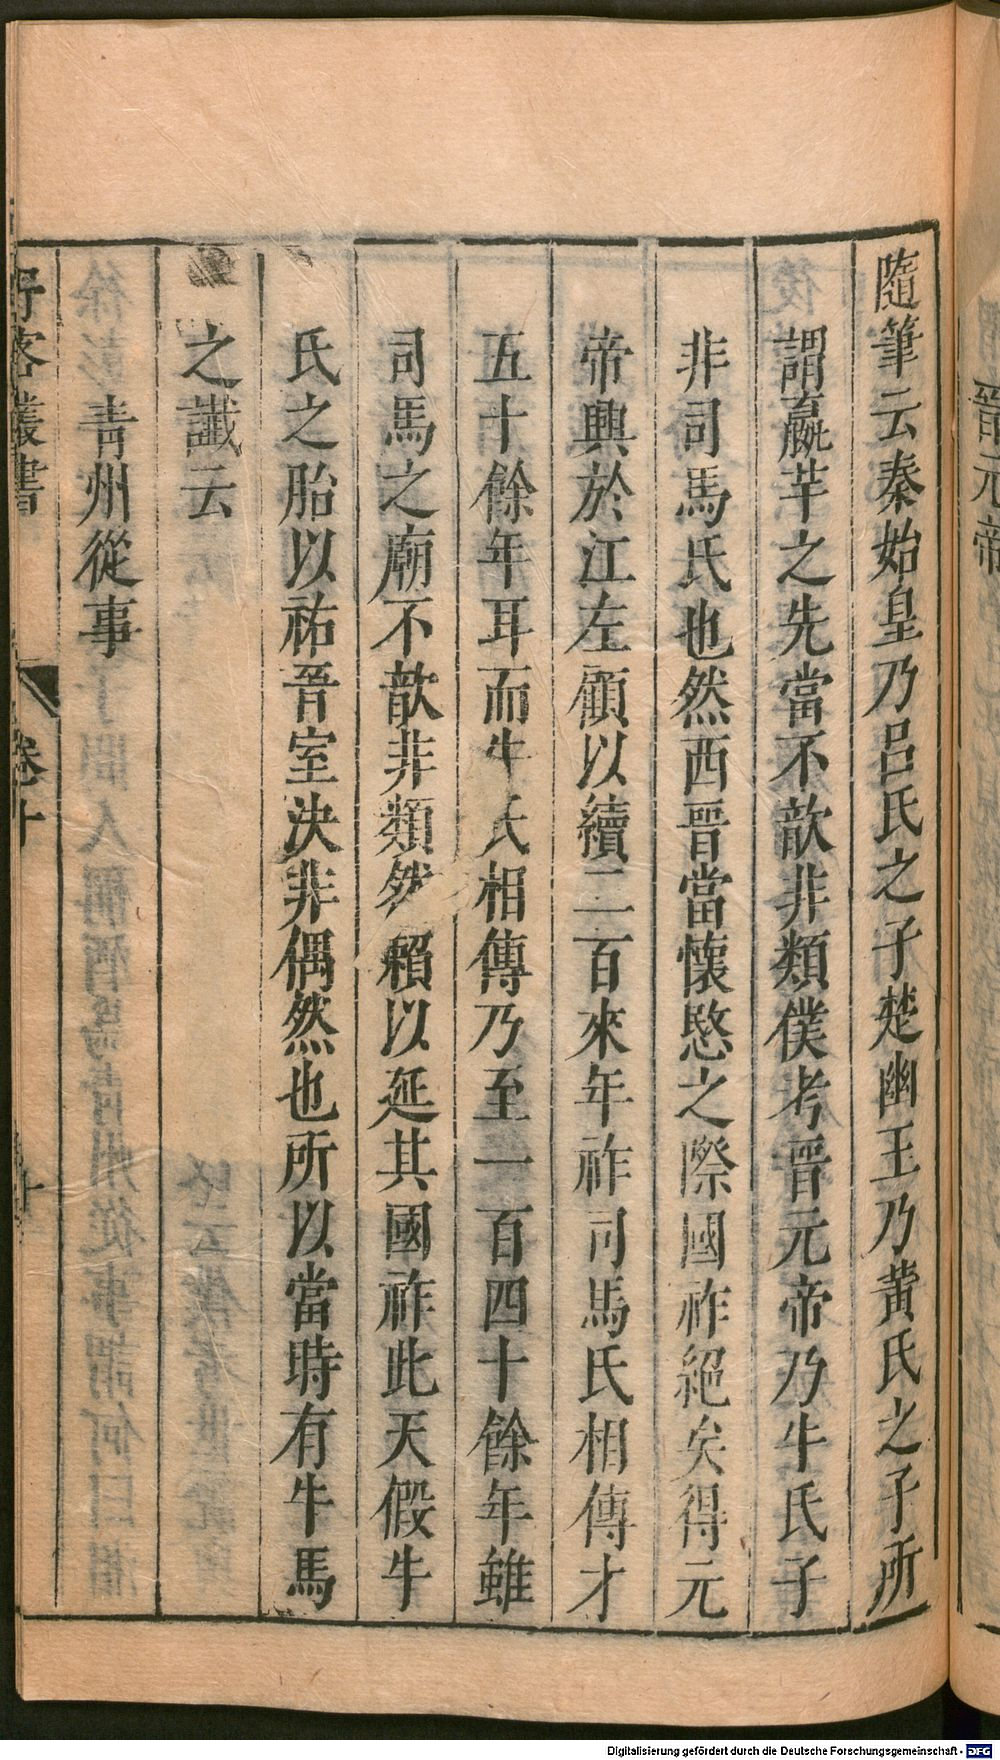 晉元帝
隨筆云秦始皇乃呂氏之子楚幽王乃黄氏之子所
謂嬴芈之先當不歆非類僕考晉元帝乃牛氏子
非司馬氏也然西晉當懷愍之際國祚絕矣得元
帝興於江左顧以續二百來年祚司馬氏相傳才
五十餘年耳而牛氏相傳乃至一百四十餘年雖
司馬之廟不歆非類然賴以延其國祚此天假牛
氏之胎以祐晉室決非偶然也所以當時有牛馬
之讖云
青州從事
野客叢書 卷十
Digitalisierung gefördert durch die Deutsche Forschungsgemeinschaft - DFG